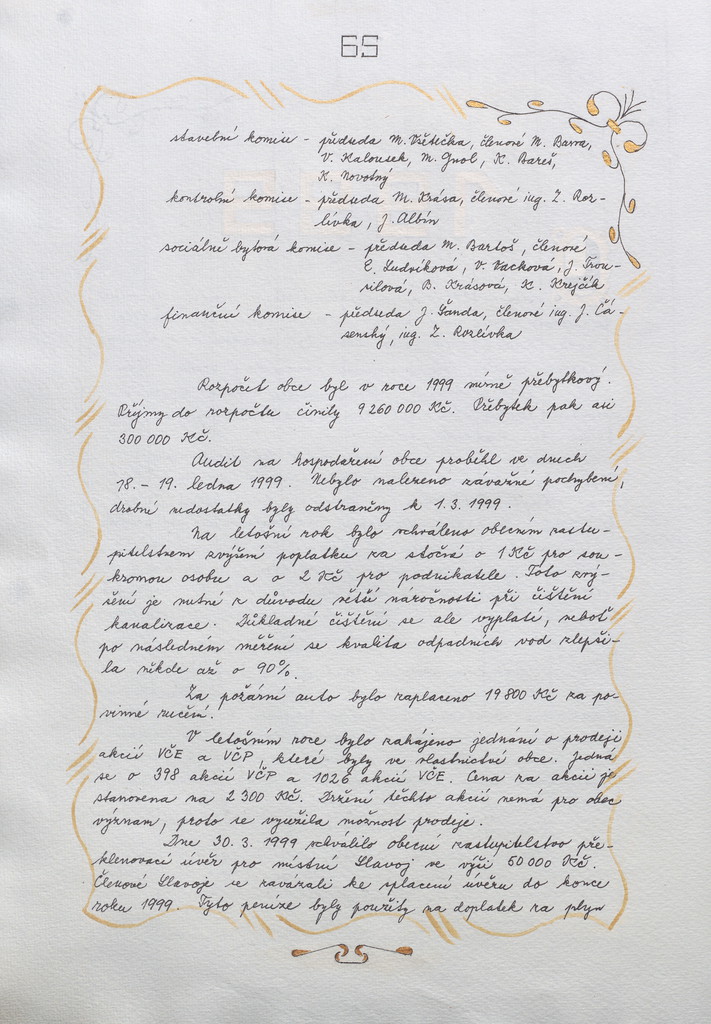 65
stavební komise - předseda M. Vřetička, členové M. Barra,
V. Kalousek, M. Gnol, K. Bareš,
K. Novotný
kontrolní komise - předseda M. Krása, členové ing. Z. Roz-
lívka, J. Albín
sociálně bytová komise - předseda M. Bartoš, členové
E. Ludvíková, V. Vacková, J. Trou-
silová, B. Krásová, K. Krejčík
finanční komise - předseda J. Šanda, členové ing. J. Čá-
senský, ing. Z. Rozlívka
Rozpočet obce byl v roce 1999 mírně přebytkový.
Příjmy do rozpočtu činily 9 260 000 Kč. Přebytek pak asi
300 000 Kč.
Audit na hospodaření obce proběhl ve dnech
18. - 19. ledna 1999. Nebylo nalezeno závažné pochybení,
drobné nedostatky byly odstraněny k 1.3.1999.
Na letošní rok bylo schváleno obecním zastu-
pitelstvem zvýšení poplatku za stočné o 1 Kč pro sou-
kromou osobu a o 2 Kč pro podnikatele. Toto zvý-
šení je nutné z důvodu větší náročnosti při čištění
kanalizace. Důkladné čištění se ale vyplatí, neboť
po následném měření se kvalita odpadních vod zlepši-
la někde až o 90%.
Za požární auto bylo zaplaceno 19 800 Kč za po-
vinné ručení.
V letošním roce bylo zahájeno jednání o prodeji
akcií VČE a VČP, které byly ve vlastnictví obce. Jedná
se o 398 akcií VČP a 1026 akcií VČE. Cena za akcii je
stanovena na 2 300 Kč. Držení těchto akcií nemá pro obec
význam, proto se využila možnost prodeje.
Dne 30. 3. 1999 schválilo obecní zastupitelstvo pře-
klenovací úvěr pro místní Slavoj ve výši 60 000 Kč.
Členové Slavoje se zavázali ke splacení úvěru do konce
roku 1999. Tyto peníze byly použity na doplatek za plyn